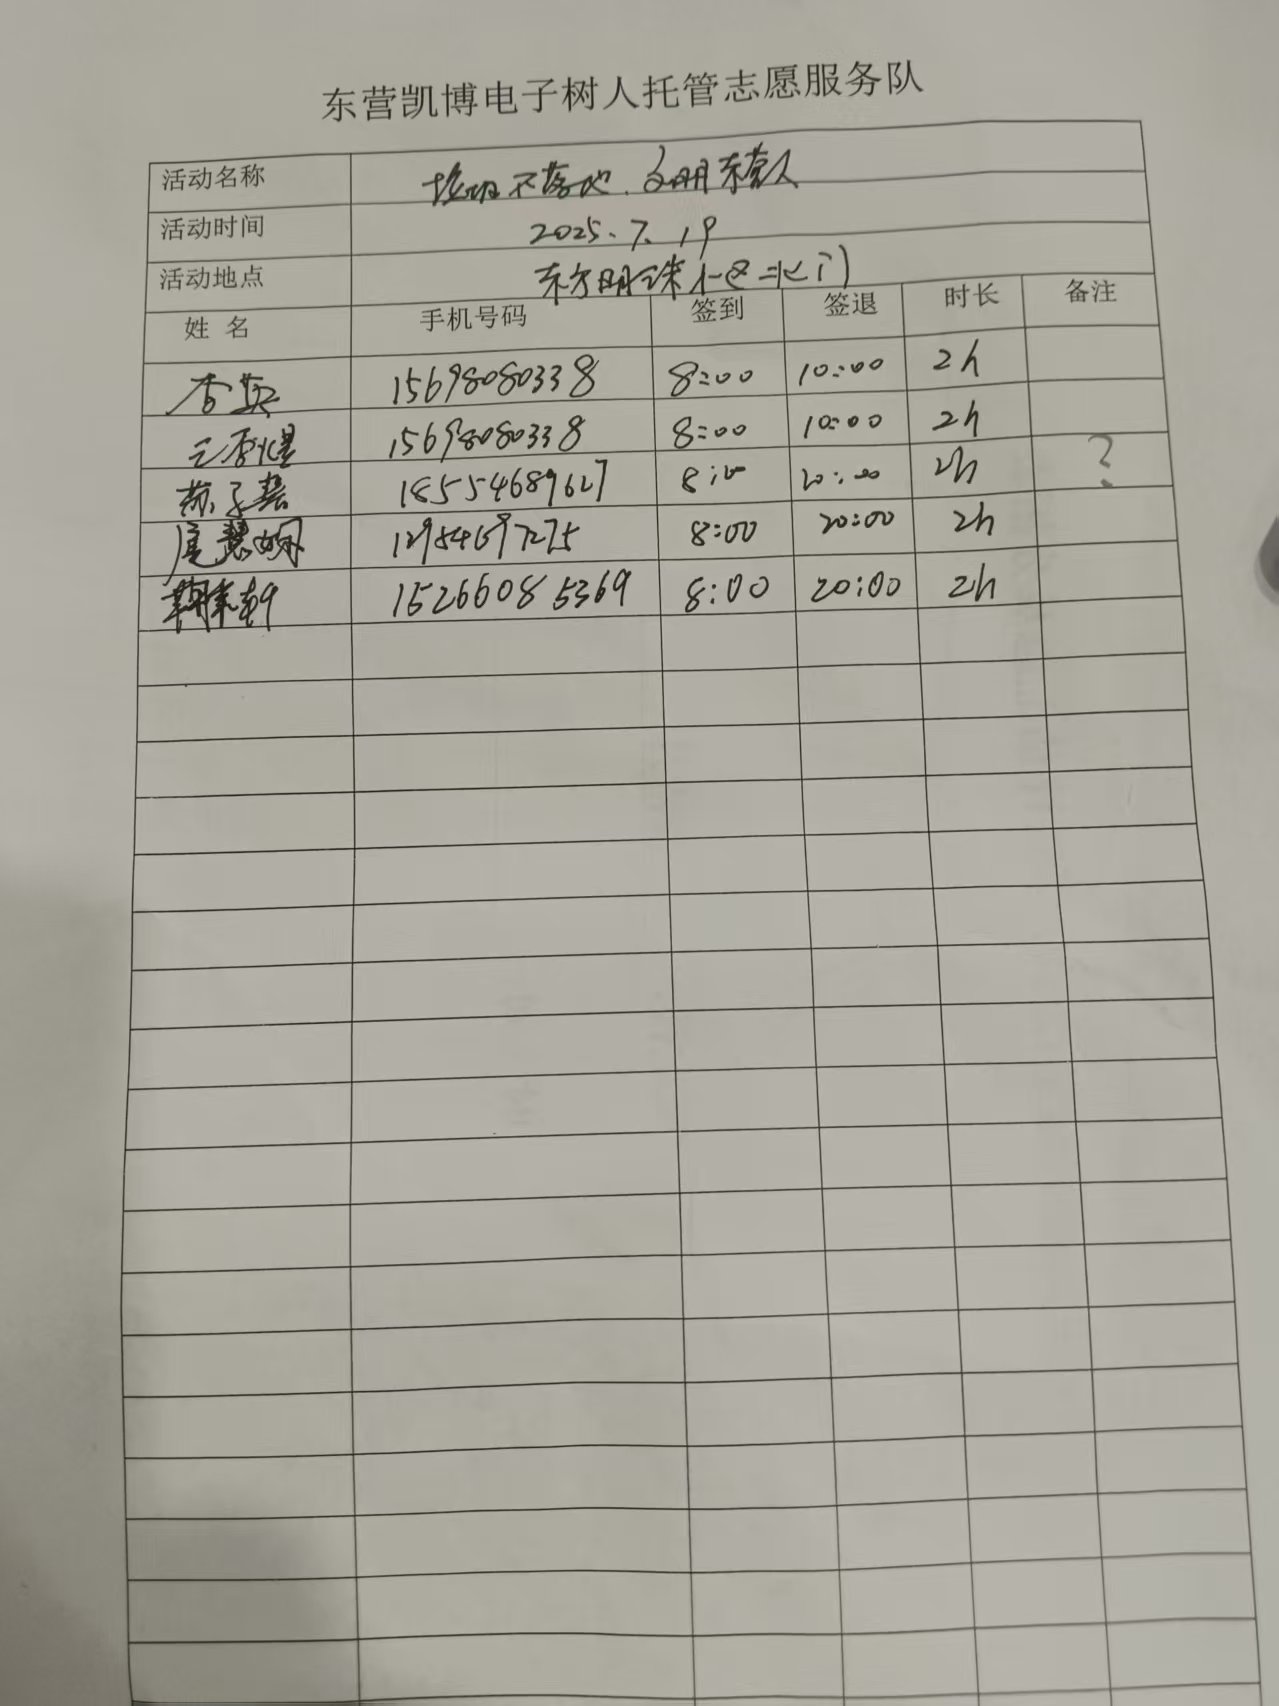 东营凯博电子树人托管志愿服务队
活动名称 垃圾不落地.文明东营人
活动时间 2025.7.19
活动地点 东方明珠小区北门
姓名 手机号码 签到 签退 时长 备注
15698080338 8:00 10:00 2h
15698080338 8:00 10:00 2h
18554689627 20:00 2h ?
8:00 20:00 2h
15266085369 8:00 20:00 2h